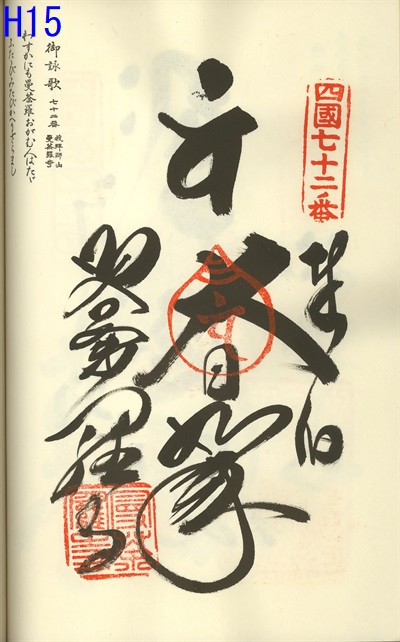 H15
四國七十二番
奉
大日如来
曼荼羅寺
御詠歌 七十二番 我拝師山 曼荼羅寺
わずかにも曼荼羅おがむ人はたゞ
ふたゝびみたびかへらざらまし